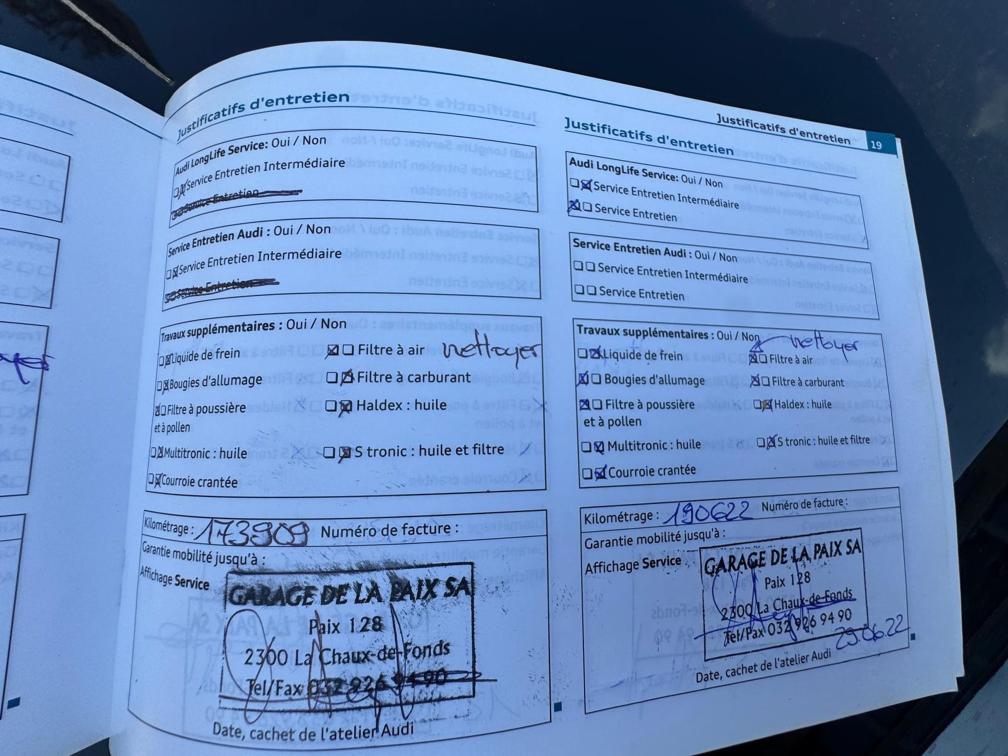 Justificatifs d'entretien
Audi LongLife Service: Oui / Non
Service Entretien Intermédiaire
Service Entretien
Service Entretien Audi : Oui / Non
Service Entretien Intermédiaire
Service Entretien
Travaux supplémentaires : Oui / Non
Liquide de frein
Filtre à air nettoyer
Bougies d'allumage
Filtre à carburant
Filtre à poussière
et à pollen
Haldex : huile
Multitronic : huile
S tronic : huile et filtre
Courroie crantée
Kilométrage : 173909 Numéro de facture :
Garantie mobilité jusqu'à :
Affichage Service
GARAGE DE LA PAIX SA
Paix 128
2300 La Chaux-de-Fonds
Tel/Fax 032 926 94 90
Date, cachet de l'atelier Audi
Justificatifs d'entretien 19
Justificatifs d'entretien
Audi LongLife Service: Oui / Non
Service Entretien Intermédiaire
Service Entretien
Service Entretien Audi : Oui / Non
Service Entretien Intermédiaire
Service Entretien
Travaux supplémentaires : Oui / Non
nettoyer
Liquide de frein
Filtre à air
Bougies d'allumage
Filtre à carburant
Filtre à poussière
et à pollen
Haldex : huile
Multitronic : huile
S tronic : huile et filtre
Courroie crantée
Kilométrage : 190622 Numéro de facture :
Garantie mobilité jusqu'à :
Affichage Service
GARAGE DE LA PAIX SA
Paix 128
2300 La Chaux-de-Fonds
Tel/Fax 032 926 94 90
29.06.22
Date, cachet de l'atelier Audi